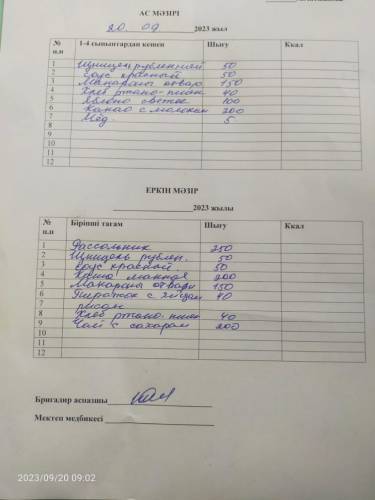 АС МӘЗІРІ
20. 09 2023 жыл
№ п.п 1-4 сыныптардан кешен Шығу Ккал
1 Шницель рубленный 50
2 Соус красный 50
3 Макароны отвар 150
4 Хлеб ржано-пшен 40
5 Яблоко свежее 100
6 Какао с молоком 200
7 Мёд 5
8
9
10
11
12
ЕРКІН МӘЗІР
2023 жылы
№ п.п Бірінші тағам Шығу Ккал
1 Рассольник 250
2 Шницель рублен. 50
3 Соус красный. 50
4 Каша манная 200
5 Макароны отварн 150
6 Пирожок с яйцом 70
7 рисом
8 Хлеб ржано-пшен 40
9 Чай с сахаром 200
10
11
12
Бригадир аспазшы
Мектеп медбикесі
2023/09/20 09:02